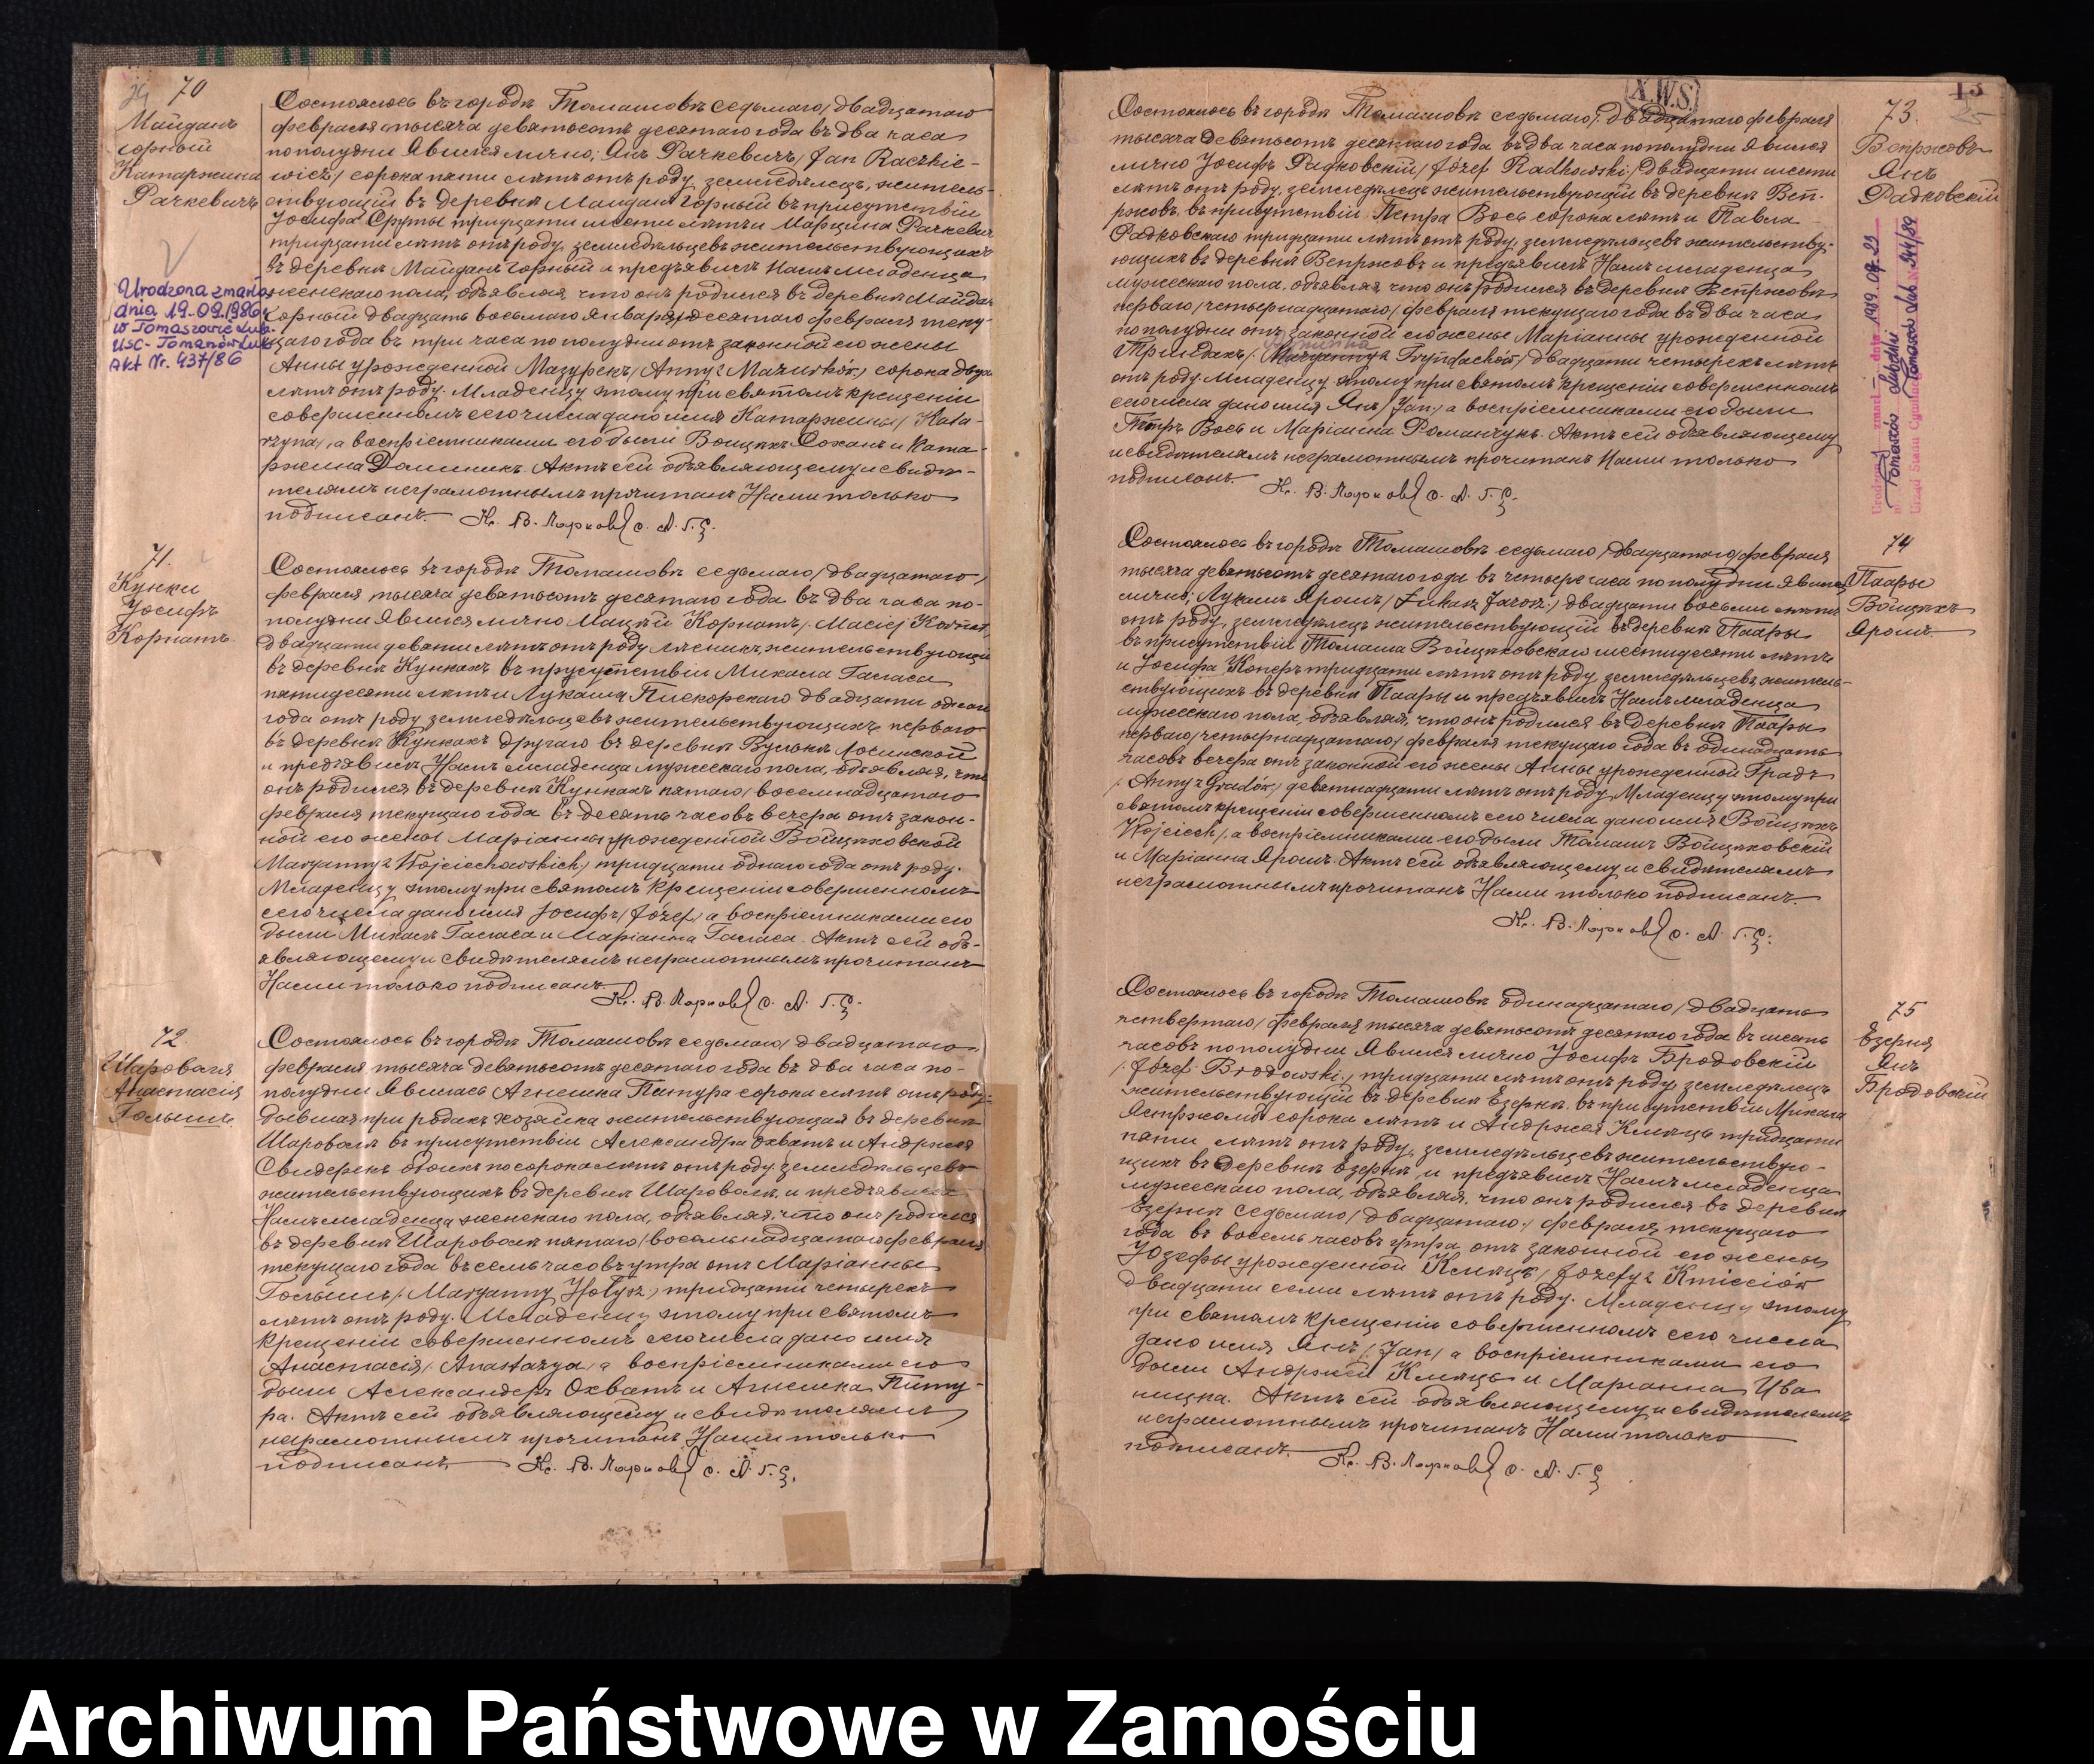 70
Майданъ
горный
Катаржина
Рачкевичъ
Urodzona zmarła
dnia 19-09.1986 r.
w Tomaszowie Lub.
USC-Tomaszów Lub.
Akt Nr. 437/86
Состоялось въ городѣ Томашовѣ седьмаго/двадцатаго
февраля тысяча девятьсотъ десятаго года въ два часа
пополудни Явился лично; Янъ Рачкевичъ/Jan Raczkie-
wicz/ сорока пяти лѣтъ отъ роду, земледѣлецъ, житель-
ствующій въ деревнѣ Майданъ Горный въ присутствіи
Іосифа Сруты тридцати шести лѣтъ и Марцина Рачкевич
тридцати лѣтъ отъ роду, земледѣльцевъ жительствующихъ
въ деревнѣ Майданъ Горный и предъявилъ Намъ младенца
женскаго пола, объявляя, что онъ родился въ деревнѣ Майдан
Горный двадцать восьмаго Января/десятаго февраля теку-
щаго года въ три часа пополудни отъ законной его жены
Анны урожденной Мазурекъ/Anny z Mazurków/ сорока двухъ
лѣтъ отъ роду. Младенцу этому при святомъ крещеніи
совершенномъ сего числа дано имя Катаржина/Kata-
rzyna/, а воспріемниками его были Войцѣхъ Соханъ и Ката-
ржина Доминикъ. Актъ сей объявляющему и свидѣ-
телямъ неграмотнымъ прочитанъ Нами только
подписанъ. Кс. В.
71.
Кунки
Іосифъ
Корнатъ.
Состоялось въ городѣ Томашовѣ седьмаго/двадцатаго/
февраля тысяча девятьсотъ десятаго года въ два часа по-
полудни Явился лично Мацѣй Корнатъ/Maciej Kornat/
двадцати девяти лѣтъ отъ роду лѣсникъ, жительствующій
въ деревнѣ Кункахъ въ присутствіи Михала Галаса
пятидесяти лѣтъ и Лукаша Пискорскаго двадцати одного
года отъ роду земледѣльцевъ жительствующихъ перваго
въ деревнѣ Кункахъ другаго въ деревнѣ
и предъявилъ Намъ младенца мужескаго пола, объявляя, что
онъ родился въ деревнѣ Кункахъ пятаго/восемнадцатаго
февраля текущаго года въ десять часовъ вечера отъ закон-
ной его жены Маріанны урожденной Войцѣховской
Maryanny z Wojciechowskich/ тридцати одного года отъ роду.
Младенцу этому при святомъ крещеніи совершенномъ
сего числа дано имя Іосифъ/Józef/ а воспріемниками его
были Михалъ Галаса и Маріанна Галаса. Актъ сей объ-
являющему и свидѣтелямъ неграмотнымъ прочитанъ
Нами только подписанъ. Кс. В.
72.
Шароволя
Анастасія
Голышъ.
Состоялось въ городѣ Томашовѣ седьмаго/двадцатаго
февраля тысяча девятьсотъ десятаго года въ два часа по-
полудни Явилась Агнешка Питура сорока лѣтъ отъ роду
бывшая при родахъ хозяйка жительствующая въ деревнѣ
Шароволя въ присутствіи Александра Охватъ и Анджея
Свидерекъ обоихъ по сорока лѣтъ отъ роду земледѣльцевъ
жительствующихъ въ деревнѣ Шароволя, и предъявила
Намъ младенца женскаго пола, объявляя, что онъ родился
въ деревнѣ Шароволя пятаго/восемнадцатаго февраля
текущаго года въ семь часовъ утра отъ Маріанны
Голышъ/Maryanny Hołysz/ тридцати четырехъ
лѣтъ отъ роду. Младенцу этому при святомъ
крещеніи совершенномъ сего числа дано имя
Анастасія/Anastazya/ а воспріемниками его
были Александеръ Охватъ и Агнешка Питу-
ра. Актъ сей объявляющему и свидѣтелямъ
неграмотнымъ прочитанъ Нами только
подписанъ. Кс. В.
X.W.S.
13
25
73.
Вепржовъ
Янъ
Радковскій
zmarł dnia 1989.09.23
Состоялось въ городѣ Томашовѣ седьмаго/двадцатаго февраля
тысяча девятьсотъ десятаго года въ два часа пополудни Явился
лично Іосифъ Радковскій/Józef Radkowski/ двадцати шести
лѣтъ отъ роду, земледѣлецъ жительствующій въ деревнѣ Веп-
ржовъ, въ присутствіи Петра Вось сорока лѣтъ и Павла
Радковскаго тридцати лѣтъ отъ роду, земледѣльцевъ жительству-
ющихъ въ деревнѣ Вепржовъ и предъявилъ Намъ младенца
мужескаго пола, объявляя что онъ родился въ деревнѣ Вепржовъ
перваго/четырнадцатаго/ февраля текущаго года въ два часа
пополудни отъ законной его жены Маріанны урожденной
/Maryanny z двадцати четырехъ лѣтъ
отъ роду. Младенцу этому при святомъ крещеніи совершенномъ
сего числа дано имя Янъ/Jan/ а воспріемниками его были
Петръ Вось и Маріанна Романчукъ. Актъ сей объявляющему
и свидѣтелямъ неграмотнымъ прочитанъ Нами только
подписанъ. Кс. В.
74
Паары
Войцѣхъ
Ярошъ.
Состоялось въ городѣ Томашовѣ седьмаго/двадцатаго/февраля
тысяча девятьсотъ десятаго года въ четыре часа пополудни Явился
лично; Лукашъ Ярошъ/Łukasz Jarosz/ двадцати восьми лѣтъ
отъ роду, земледѣлецъ жительствующій въ деревнѣ Паары
въ присутствіи Томаша Войцѣховскаго шестидесяти лѣтъ
и Іосифа Коперъ тридцати лѣтъ отъ роду, земледѣльцевъ житель-
ствующихъ въ деревнѣ Паары и предъявилъ Намъ младенца
мужескаго пола, объявляя, что онъ родился въ деревнѣ Паары
перваго/четырнадцатаго/ февраля текущаго года въ одинадцать
часовъ вечера отъ законной его жены Анны урожденной Градъ
/Anny z Gradów/ девятнадцати лѣтъ отъ роду, Младенцу этому при
святомъ крещеніи совершенномъ сего числа дано имя Войцѣхъ
Wojciech/, а воспріемниками его были Томашъ Войцѣховскій
и Маріанна Ярошъ. Актъ сей объявляющему и свидѣтелямъ
неграмотнымъ прочитанъ Нами только подписанъ.
Кс. В.
75
Езерня
Янъ
Бродовскій
Состоялось въ городѣ Томашовѣ одинадцатаго/двадцать
четвертаго/ февраля тысяча девятьсотъ десятаго года въ шесть
часовъ пополудни Явился лично Іосифъ Бродовскій
/Józef Brodowski/, тридцати лѣтъ отъ роду, земледѣлецъ
жительствующій въ деревнѣ Езерня, въ присутствіи Михала
сорока лѣтъ и Анджея Кмѣцъ тридцати
пяти лѣтъ отъ роду, земледѣльцевъ жительствую-
щихъ въ деревнѣ Езерня и предъявилъ Намъ младенца
мужескаго пола, объявляя, что онъ родился въ деревнѣ
Езерня седьмаго/двадцатаго/ февраля текущаго
года въ восемь часовъ утра отъ законной его жены
Юзефы урожденной Кмѣцъ/Józefy z Kmieciów
двадцати семи лѣтъ отъ роду. Младенцу этому
при святомъ крещеніи совершенномъ сего числа
дано имя Янъ/Jan/ а воспріемниками его
были Анджей Кмѣцъ и Маріанна Ива
ницка. Актъ сей объявляющему и свидѣтелямъ
неграмотнымъ прочитанъ Нами только
подписанъ. Кс. В.
Archiwum Państwowe w Zamościu